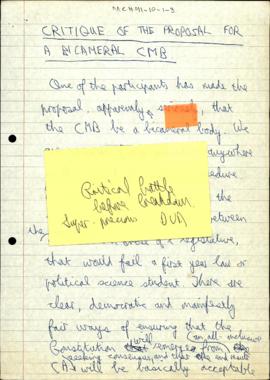 MCH91-10-1-3
CRITIQUE OF THE PROPOSAL FOR
A BICAMERAL CMB
One of the participants has made the
proposal, apparently, that
the CMB be a bicameral body. We
anywhere
the
Political battle
before breakdown
Super-precious DUA
between
the of a legislature,
that would fail a first year law or
political science student. There are
clear, democratic and manifestly
fair ways of ensuring that the
Constitution will emerge from an all-inclusive
seeking consensus, and that
CA will be basically acceptable